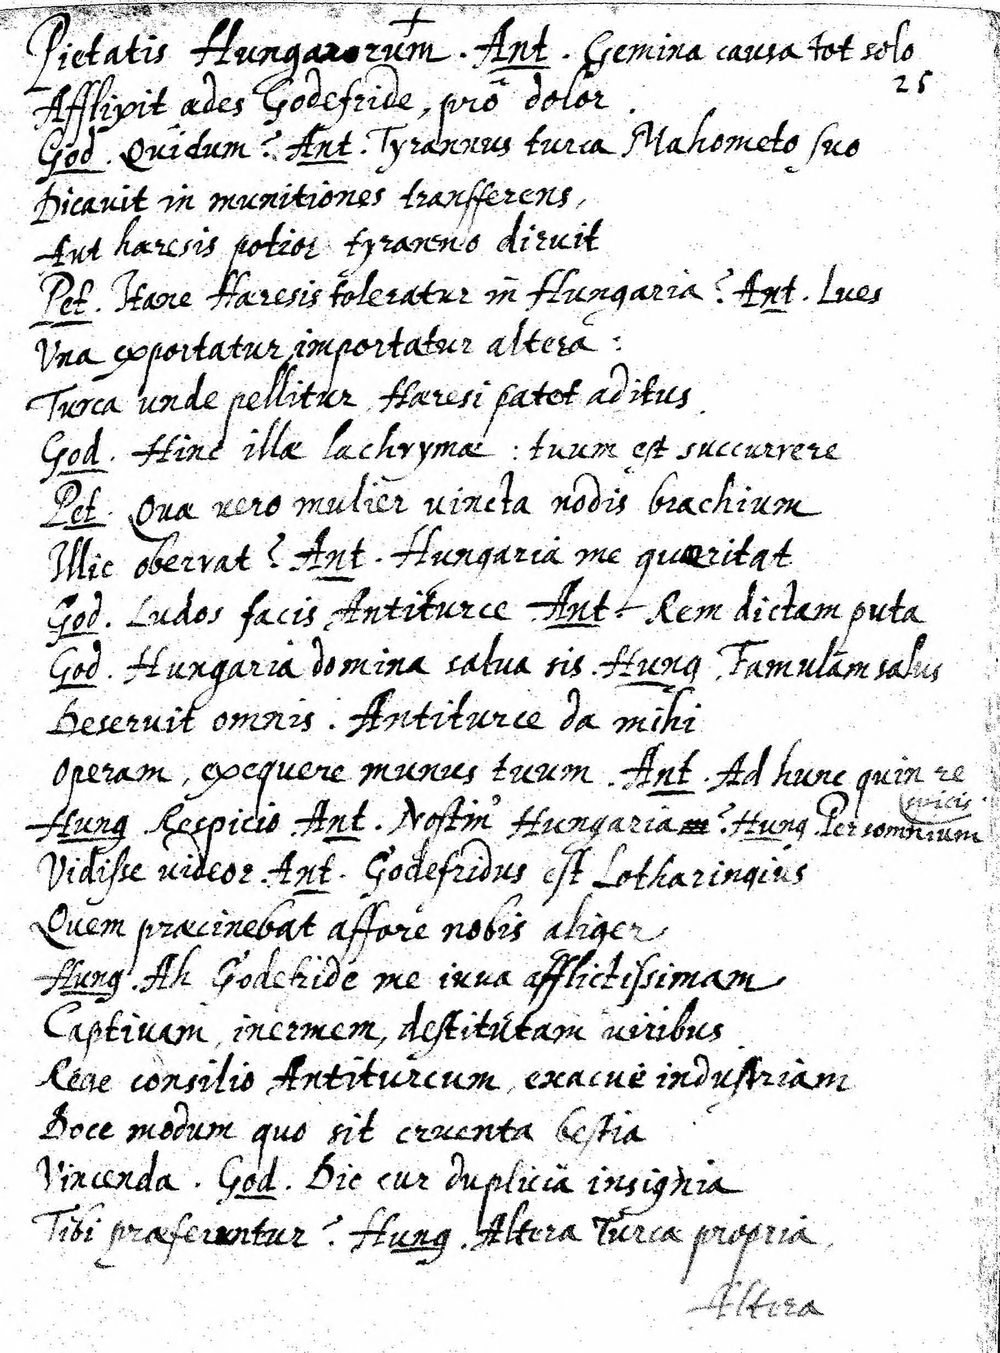 Pietatis Hungarorum. Ant. Gemina causa tot solo
25
Afflixit ædes Godefride, prô dolor.
God. Quidum? Ant. Tyrannus turca Mahometo suo
Dicauit in munitiones transferens,
Aut hæresis potior tyranno diruit
Pet. Hane Hæresis toleratur in Hungaria? Ant. Lues
Vna exportatur, importatur altera:
Turca unde pellitur, Hæresi patet aditus.
God. Hinc illæ lachrymæ: tuum est succurrere
Pet. Quæ uero mulier uincta nodis brachium
Illic oberrat? Ant. Hungaria me quæritat
God. Ludos facis Antiturce Ant. Rem dictam puta
God. Hungaria domina salua sis. Hung. Famulam salus
Deseruit omnis. Antiturce da mihi
Operam, exequere munus tuum. Ant. Ad hunc quin re
spicis.
Hung Respicio Ant. Nostin' Hungaria? Hung. Per somnium
Vidisse uideor. Ant. Godefridus est Lotharingius
Quem præcinebat affore nobis aliger
Hung. Ah Godefride me iuua afflictissimam
Captiuam, inermem, destitutam uiribus
Rege consilio Antiturcum, exacue industriam
Doce modum quo sit cruenta bestia
Vincenda. God. Dic cur duplicia insignia
Tibi præferuntur? Hung. Altera Turca propria,
Altera